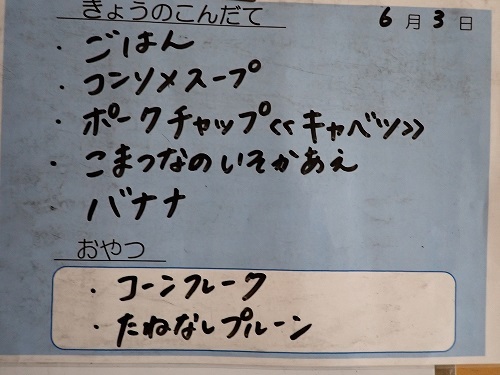 きょうのこんだて 6月3日
・ごはん
・コンソメスープ
・ポークチャップ《キャベツ》
・こまつなのいそかあえ
バナナ
おやつ
・コーンフレーク
・たねなしプルーン